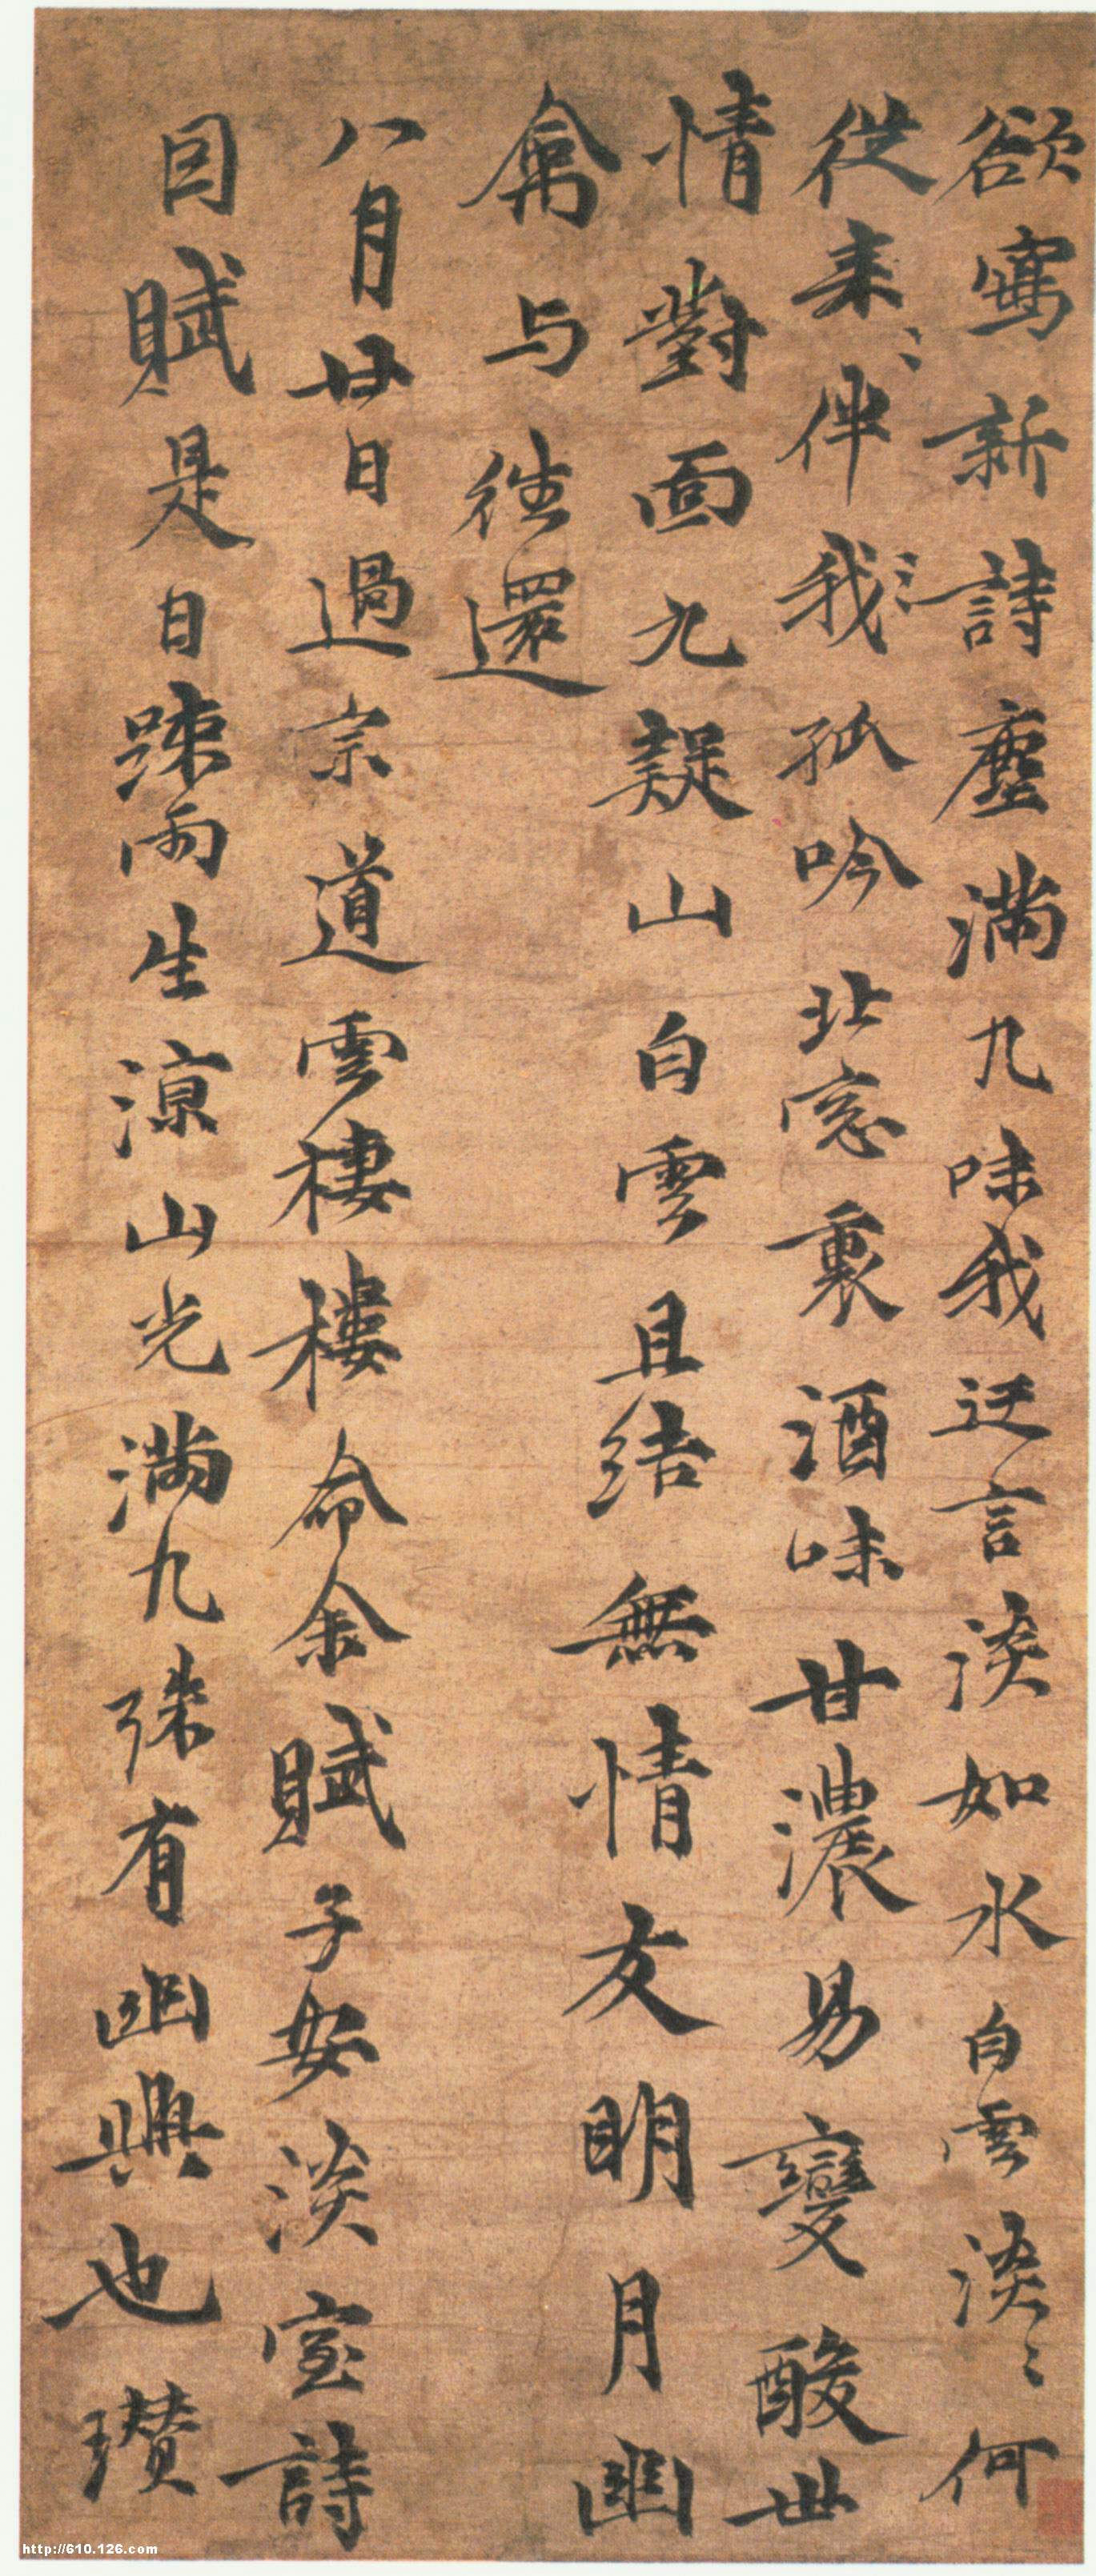 欲寫新詩塵滿几味我迂言淡如水白雲淡〻何
從来〻伴我〻孤吟北窓裏酒味甘濃易變酸世
情對面九疑山白雲且結無情友明月幽
禽与往還
八月廿日過宗道雲棲樓命余賦子安淡室詩
因賦是日踈雨生涼山光滿几殊有幽興也瓚
http://610.126.com